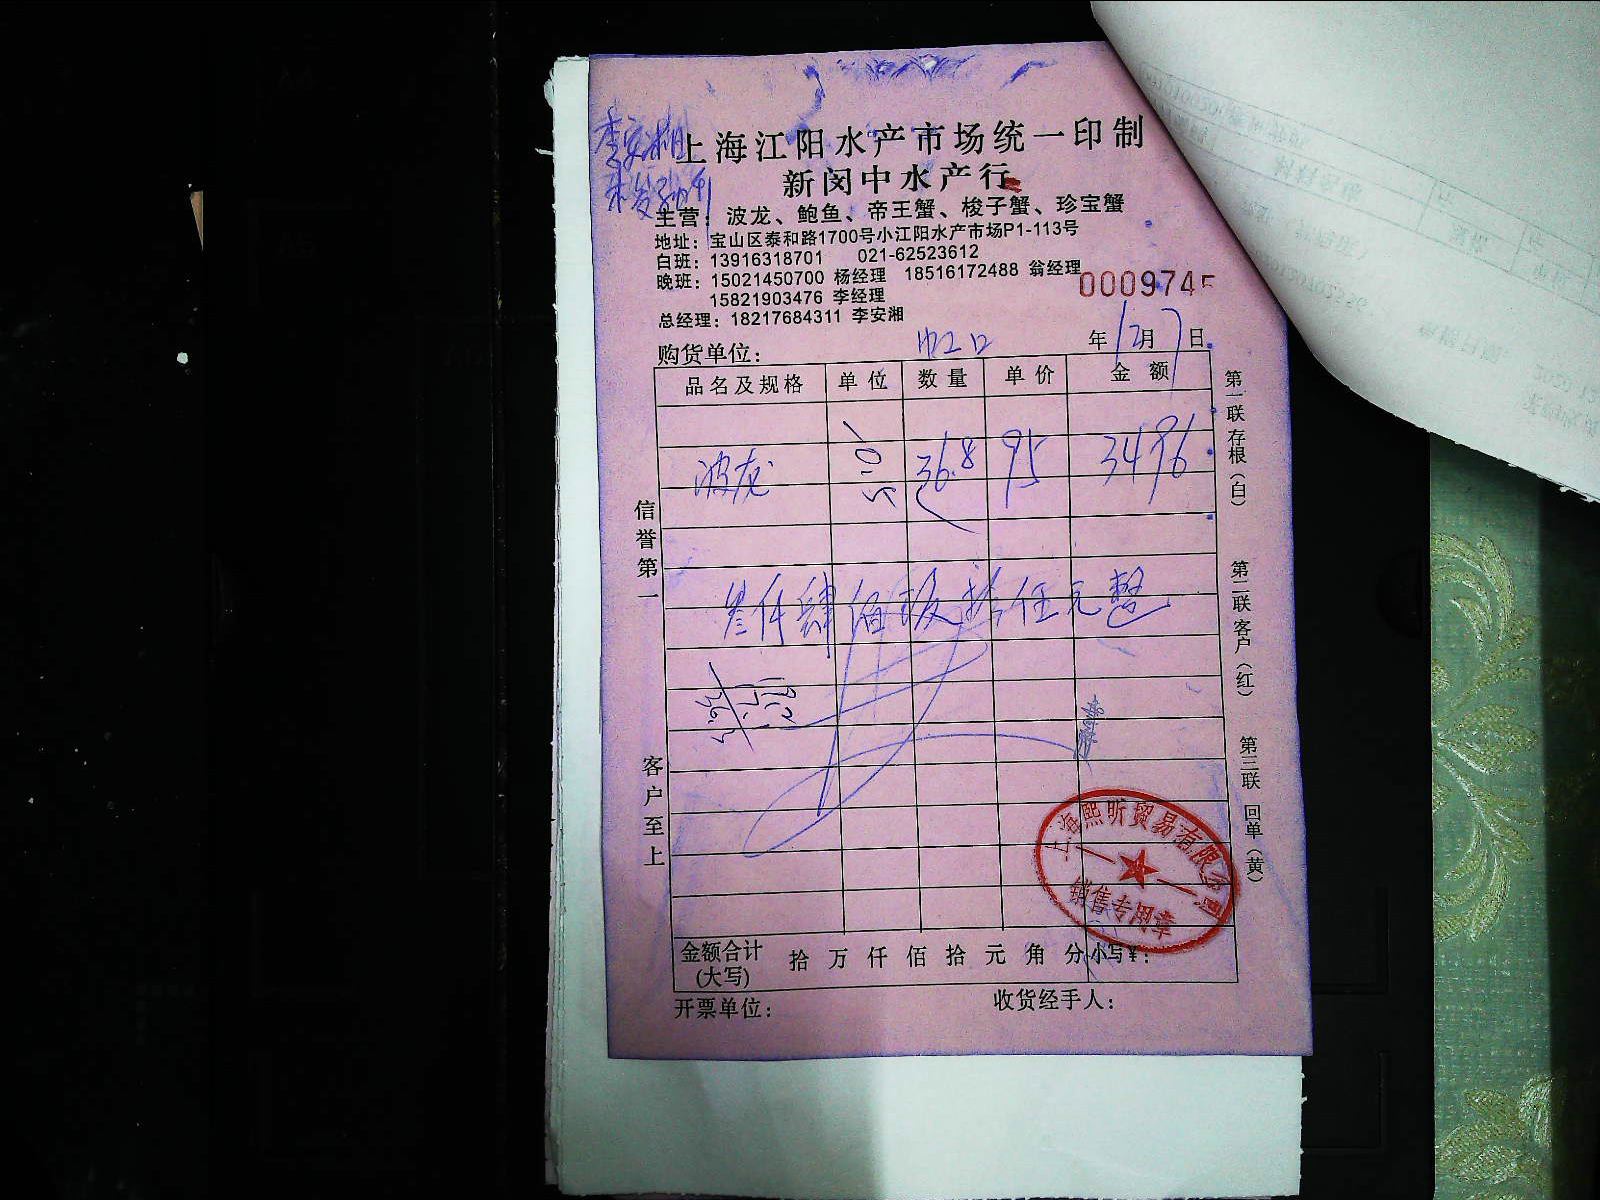 李安湘
上海江阳水产市场统一印制
新闵中水产行
主营：波龙、鲍鱼、帝王蟹、梭子蟹、珍宝蟹
地址：宝山区泰和路1700号小江阳水产市场P1-113号
白班：13916318701 021-62523612
晚班：15021450700 杨经理 18516172488 翁经理
15821903476 李经理
总经理：18217684311 李安湘
000974
购货单位： 虹口 年 12月 7日
品名及规格 单位 数量 单价 金额
波龙 36.8 95 3496
叁仟肆佰玖拾陆元整
信誉第一
客户至上
第一联 存根（白）
第二联 客户（红）
第三联 回单（黄）
上海熙昕贸易有限公司
销售专用章
金额合计(大写) 拾 万 仟 佰 拾 元 角 分 小写￥：
开票单位： 收货经手人：